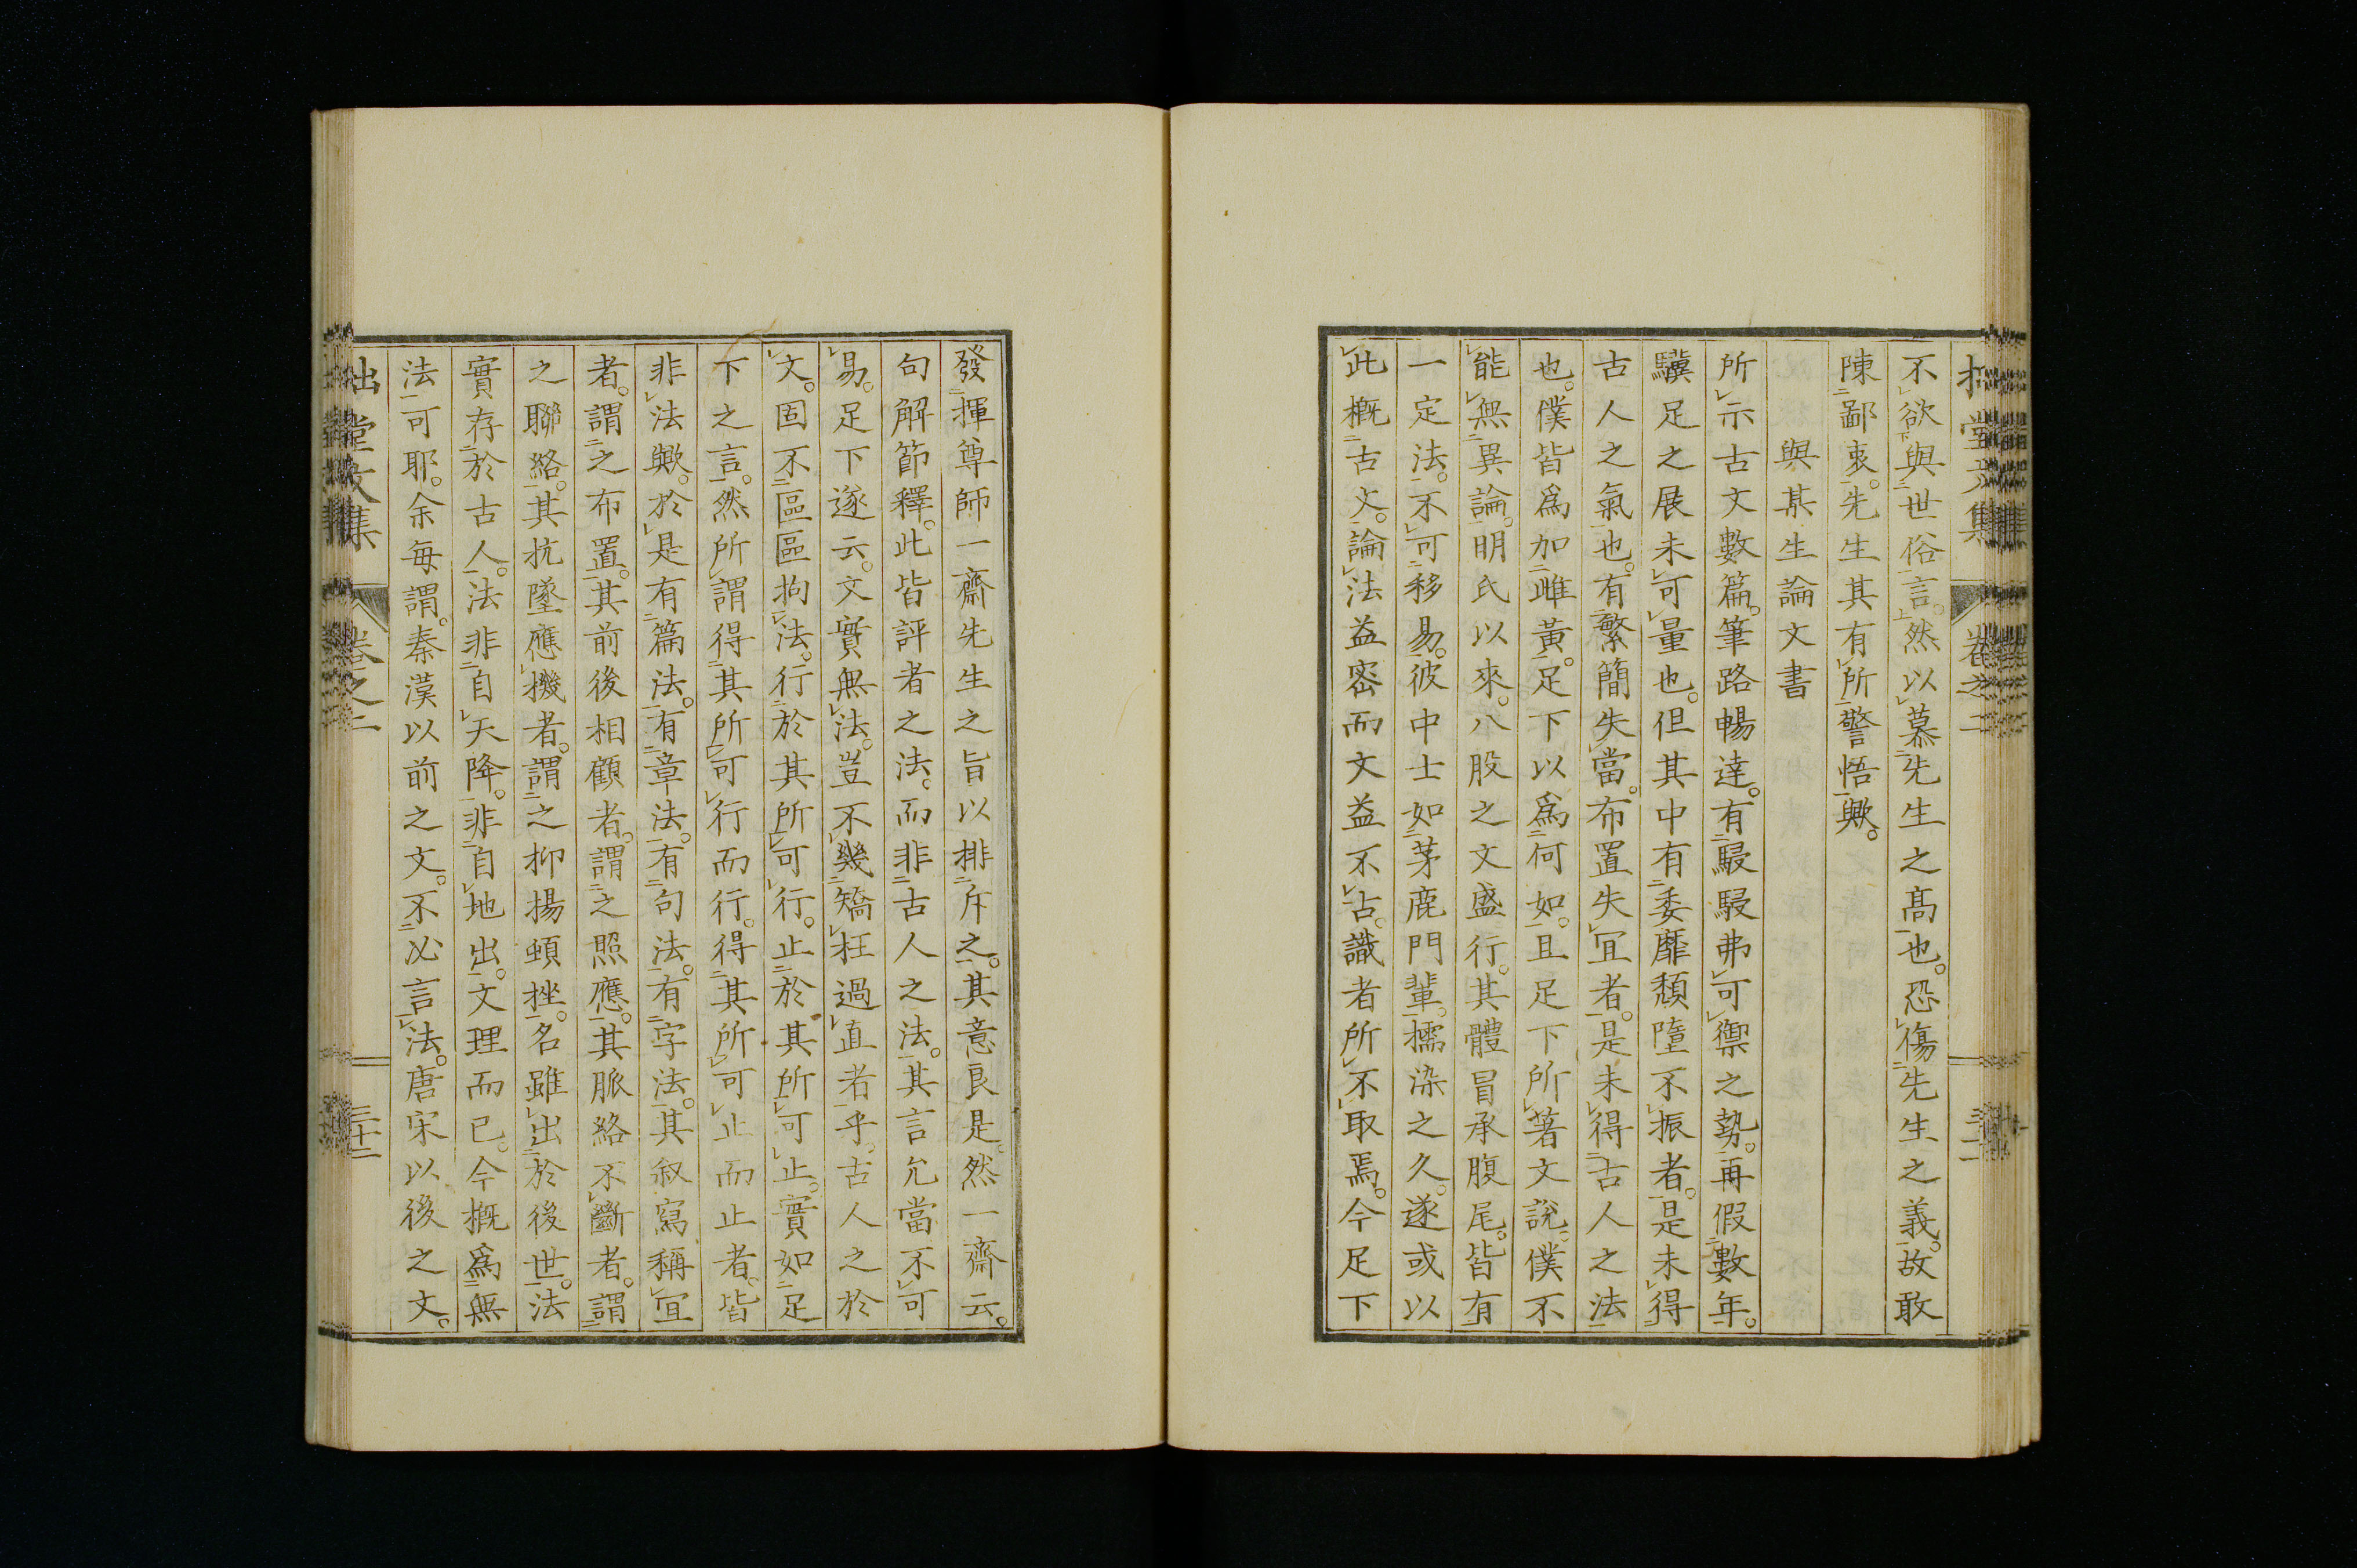 不欲與世俗言。然以慕先生之高也。恐傷先生之義。故敢
陳鄙衷。先生其有所警悟歟。
與某生論文書
所示古文數篇。筆路暢達。有駸駸弗可禦之勢。再假數年。
驥足之展未可量也。但其中有委靡頹墮不振者。是未得
古人之氣也。有繁簡失當。布置失宜者。是未得古人之法
也。僕皆爲加雌黃。足下以爲何如。且足下所著文說。僕不
能無異論。明氏以來。八股之文盛行。其體冒承腹尾。皆有
一定法。不可移易。彼中士如茅鹿門輩。擩染之久。遂或以
此概古文。論法益密而文益不古。識者所不取焉。今足下
發揮尊師一齋先生之旨以排斥之。其意良是。然一齋云。
句解節釋。此皆評者之法。而非古人之法。其言允當不可
易。足下遂云。文實無法。豈不幾矯枉過直者乎。古人之於
文。固不區區拘法。行於其所可行。止於其所可止。實如足
下之言。然所謂得其所可行而行。得其所可止而止者。皆
非法歟。於是有篇法。有章法。有句法。有字法。其叙寫稱宜
者。謂之布置。其前後相顧者。謂之照應。其脈絡不斷者。謂
之聯絡。其抗墜應機者。謂之抑揚頓挫。名雖出於後世。法
實存於古人。法非自天降。非自地出。文理而已。今概爲無
法可耶。余每謂。秦漢以前之文。不必言法。唐宋以後之文。
拙堂文集 卷之二 三十二